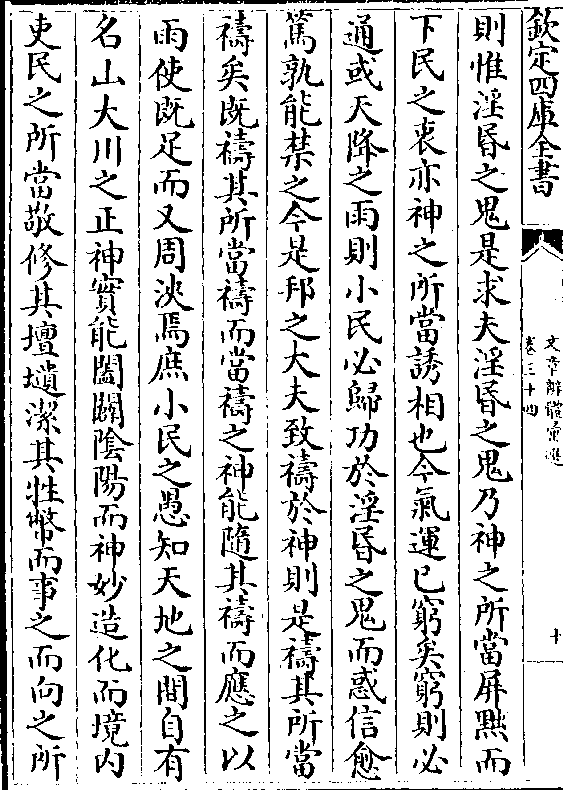 欽定四庫全書
文章辨體彙選
卷三十四
十
則惟淫昏之鬼是求夫淫昏之鬼乃神之所當屏黜而
下民之衷亦神之所當誘相也今氣運已窮矣窮則必
通或天降之雨則小民必歸功於淫昏之鬼而惑信愈
篤孰能禁之今是邦之大夫致禱於神則是禱其所當
禱矣既禱其所當禱而當禱之神能隨其禱而應之以
雨使既足而又周浹焉庶小民之愚知天地之間自有
名山大川之正神實能闔闢陰陽而神妙造化而境内
吏民之所當敬修其壇壝潔其牲幣而事之而向之所